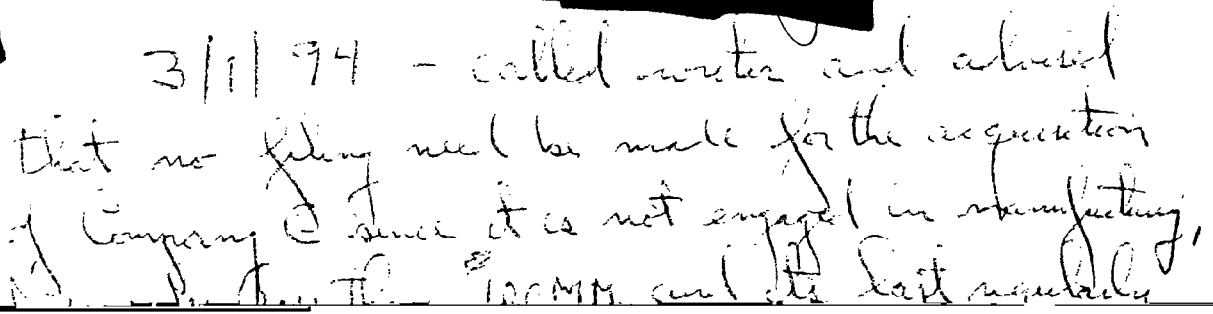 3/1/94 - called writer and advised
that no filing need be made for the acquisition
of Company C since it is not engaged in manufacturing,
$100MM and its last regularly